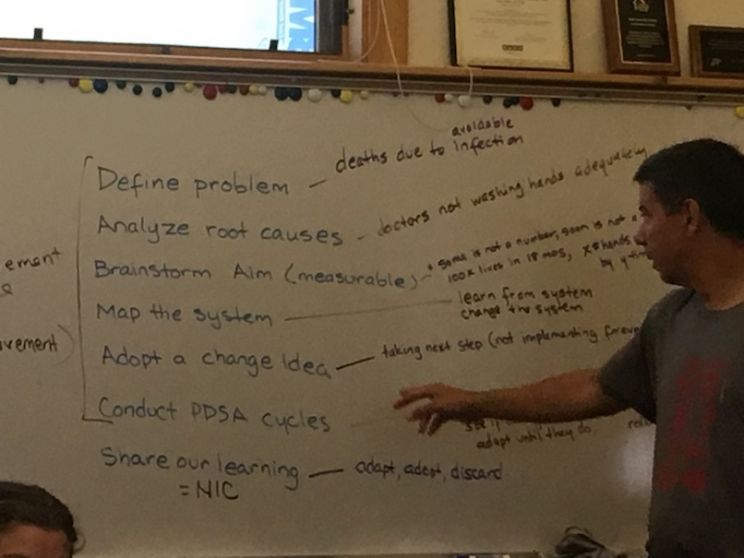 avoidable
Define problem — deaths due to infection
Analyze root causes - doctors not washing hands adequately
Brainstorm Aim (measurable) - * Some is not a number, soon is not a
100K lives in 18 mos, X % hands
by y-time
Map the system — learn from system
change the system
Adopt a change Idea — taking next step (not implementing forever
Conduct PDSA cycles
see if
adapt until they do.
Share our learning — adapt, adopt, discard
= NIC
ement
vement)